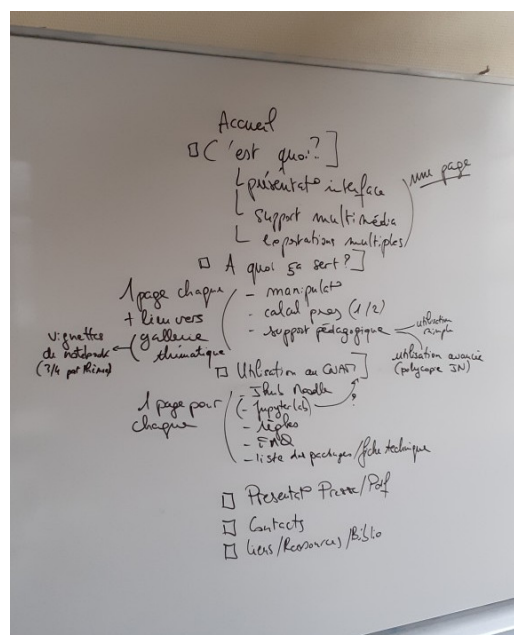 Accueil
C'est quoi?
présentat° interface
support multimédia
exportations multiples
une page
A quoi ça sert?
1 page chaque
+ lien vers
gallerie
thématique
vignettes
de notebooks
(3/4 par thème)
- manipulat°
- calcul pres (1/2)
- support pédagogique
utilisation
simple
utilisation avancée
(polycopie JN)
Utilisation au
1 page pour
chaque
- Jhub Moodle
(- Jupyterlab)
?
- règles
- FAQ
- liste des packages/fiche technique
Présentat° Presse/Pdf
Contacts
Liens/Ressources/Biblio